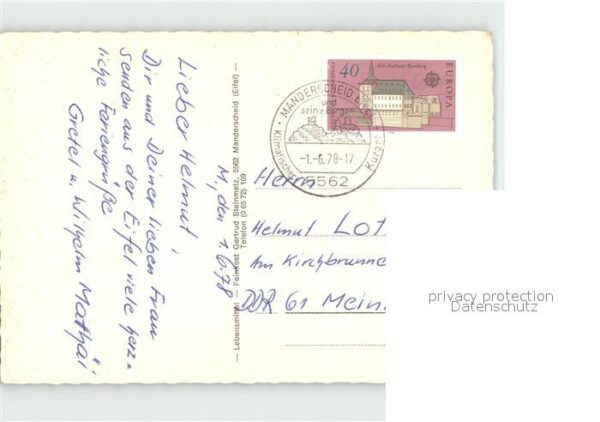 Lieber Helmut,
Dir und Deiner lieben Frau
senden aus der Eifel viele herz=
liche Feriengrüße
Gretel u. Wilhelm Mathäi
M, den 1.6.78
— Lebensmittel — Feinkost Gertrud Steinmetz, 5562 Manderscheid (Eifel) —
Telefon (0 65 72) 109
40
Altes Rathaus Bamberg
EUROPA
MANDERSCHEID
und
seine Burgen
-1.-6.78-17
Klimatischer Kurort
5562
Herrn
Helmut Lot
Am Kirchbrunne
DDR 61 Mein
privacy protection
Datenschutz